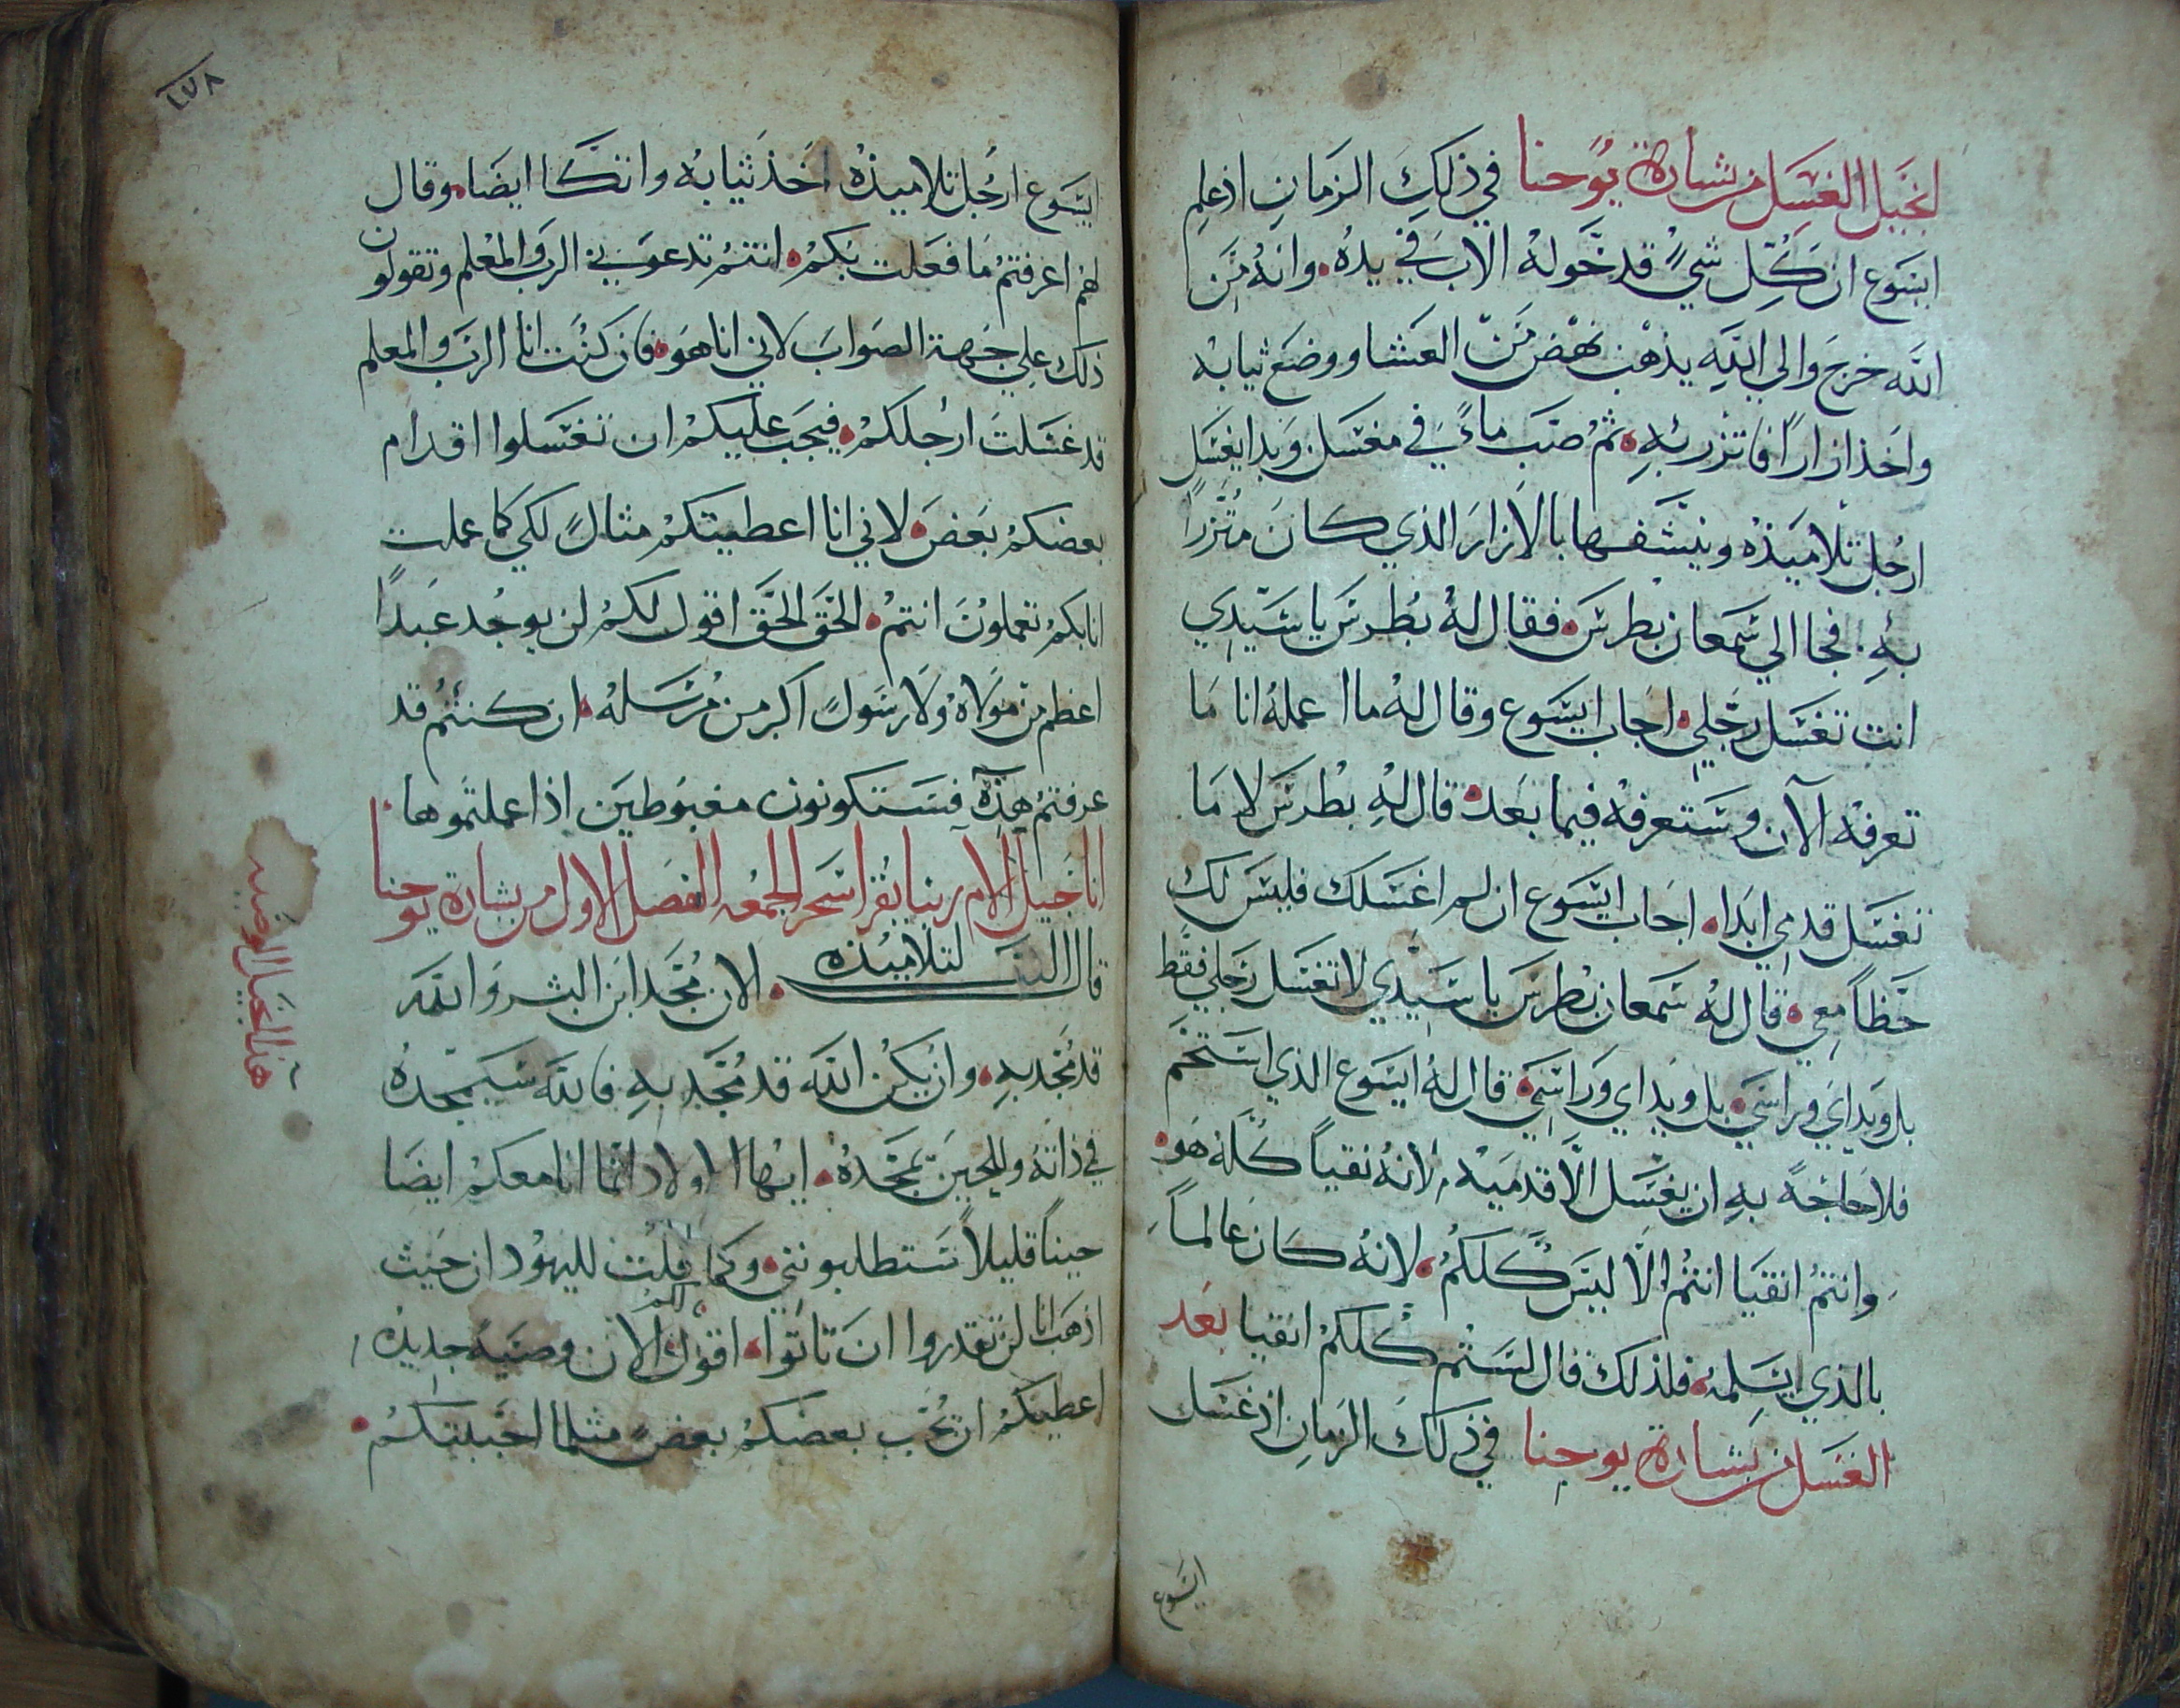 انجيل الغسل من بشارة يوحنا في ذلك الزمان اذ علم
ايسوع ان كل شي قد خوله الاب في يده وانه من
الله خرج والي الله يذهب نهض من العشا ووضع ثيابه
واخذ ازارا فاتزر به ثم صب ماء في مغسل وبدا يغسل
ارجل تلاميذه وينشفها بالازار الذي كان متزرا
به فجا الي شمعان بطرس فقال له بطرس يا سيدي
انت تغسل رجلي اجاب ايسوع وقال له ما اعمله انا ما
تعرفه الآن وستعرفه فيما بعد قال له بطرس لا ما
تغسل قدمي ابدا اجاب ايسوع ان لم اغسلك فليس لك
حظا معي قال له سمعان بطرس يا سيدي لا تغسل رجلي فقط
بل ويداي وراسي بل ويداي وراسي قال له ايسوع الذي استحم
فلا حاجة به ان يغسل الا قدميه لانه نقيا كله هو
وانتم انقيا انتم الا ليس كلكم لانه كان عالما
بالذي يسلمه فلذلك قال لستم كلكم انقيا بعد
الغسل من بشارة يوحنا في ذلك الزمان اذ غسل
ايسوع
٤٧٨
ايسوع ارجل تلاميذه اخذ ثيابه واتكا ايضا وقال
لهم اعرفتم ما فعلت بكم انتم تدعوني الرب والمعلم وتقولون
ذلك علي جهة الصواب لاني انا هو فان كنت انا الرب والمعلم
قد غسلت ارجلكم فيجب عليكم ان تغسلوا اقدام
بعضكم بعض لاني انا اعطيتكم مثال لكي كما عملت
انا بكم تعملون انتم الحق الحق اقول لكم لن يوجد عبدا
اعظم من مولاه ولا رسول اكرم من مرسله ان كنتم قد
عرفتم هذه فستكونون مغبوطين اذا عملتموها
اناجيل الام ربنا يقرا سحر الجمعه الفصل الاول من بشارة يوحنا
قال الرب لتلاميذه الان مجد ابن البشر والله
قد مجد به وان يكن الله قد مجد به فالله سيمجده
في ذاته وللحين يمجده ايها الاولاد انما انا معكم ايضا
حينا قليلا ستطلبونني وكما قلت لليهود ان حيث
اذهب انا لن تقدروا ان تاتوا اقول لكم الآن وصية جديده
اعطيتكم ان يحب بعضكم بعض مثلما احببتكم
هذا انجيل الوصيه